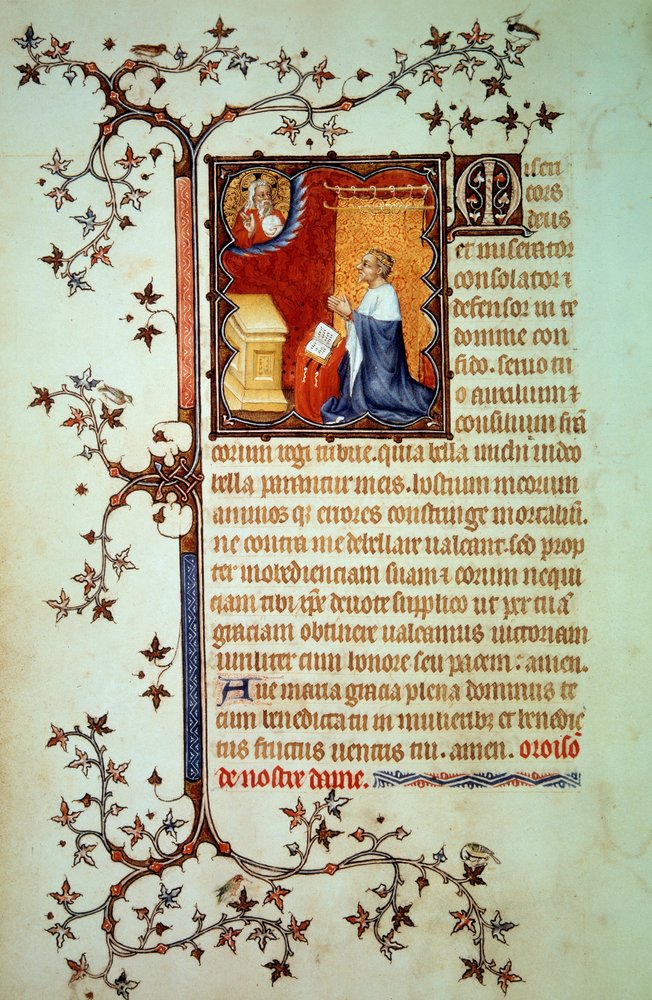 Miseri
cors
deus
et miserator
consolator ⁊
defensor in te
domine con
fido. seruo tu
o auxilium ⁊
consilium
corum regi tribue. quia bella michi ideo
bella parantur meis. hostium meorum
animos q̃ errores constringe mortaliũ.
ne contra me debellare ualeant. sed prop
ter inobedienciam suam ⁊ eorum nequi
ciam tibi xp̃e deuote supplico ut per tuã
graciam obtinere ualeamus uictoriam
uiriliter cum honore seu pacem: amen.
Aue maria gracia plena dominus te
cum benedicta tu in mulieribꝫ et benedic
tus fructus uentris tui. amen. Oroisõ
de nostre dame.